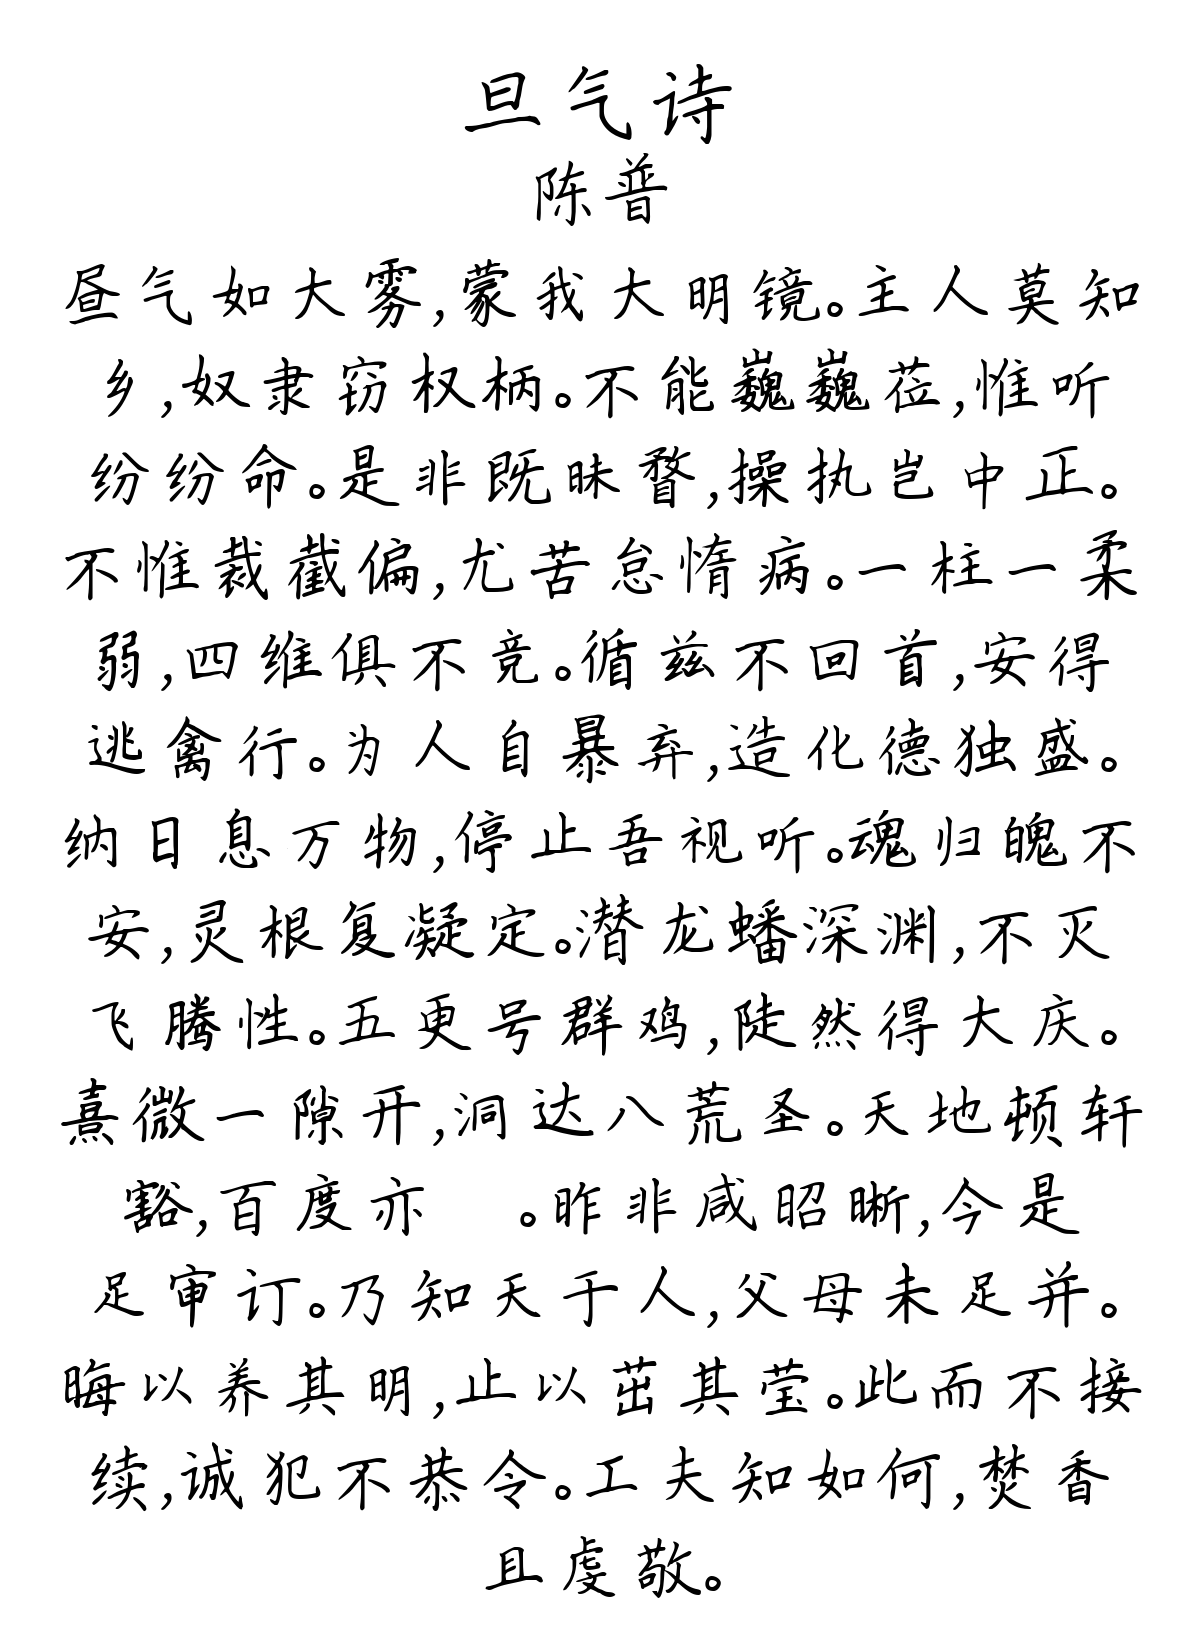 旦气诗
陈普
昼气如大雾,蒙我大明镜。主人莫知
乡,奴隶窃权柄。不能巍巍莅,惟听
纷纷命。是非既昧瞀,操执岂中正。
不惟裁截偏,尤苦怠惰病。一柱一柔
弱,四维俱不竞。循兹不回首,安得
逃禽行。为人自暴弃,造化德独盛。
纳日息万物,停止吾视听。魂归魄不
安,灵根复凝定。潜龙蟠深渊,不灭
飞腾性。五更号群鸡,陡然得大庆。
熹微一隙开,洞达八荒圣。天地顿轩
豁,百度亦 。昨非咸昭晰,今是
足审订。乃知天于人,父母未足并。
晦以养其明,止以茁其莹。此而不接
续,诚犯不恭令。工夫知如何,焚香
且虔敬。